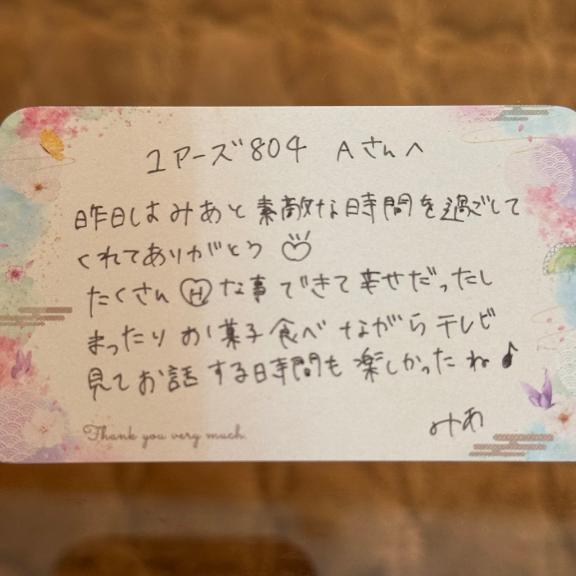 ユアーズ804 Aさんへ
昨日はみあと素敵な時間を過ごして
くれてありがとう
たくさんHな事できて幸せだったし
まったりお菓子食べながらテレビ
見てお話する時間も楽しかったね♪
みあ
Thank you very much